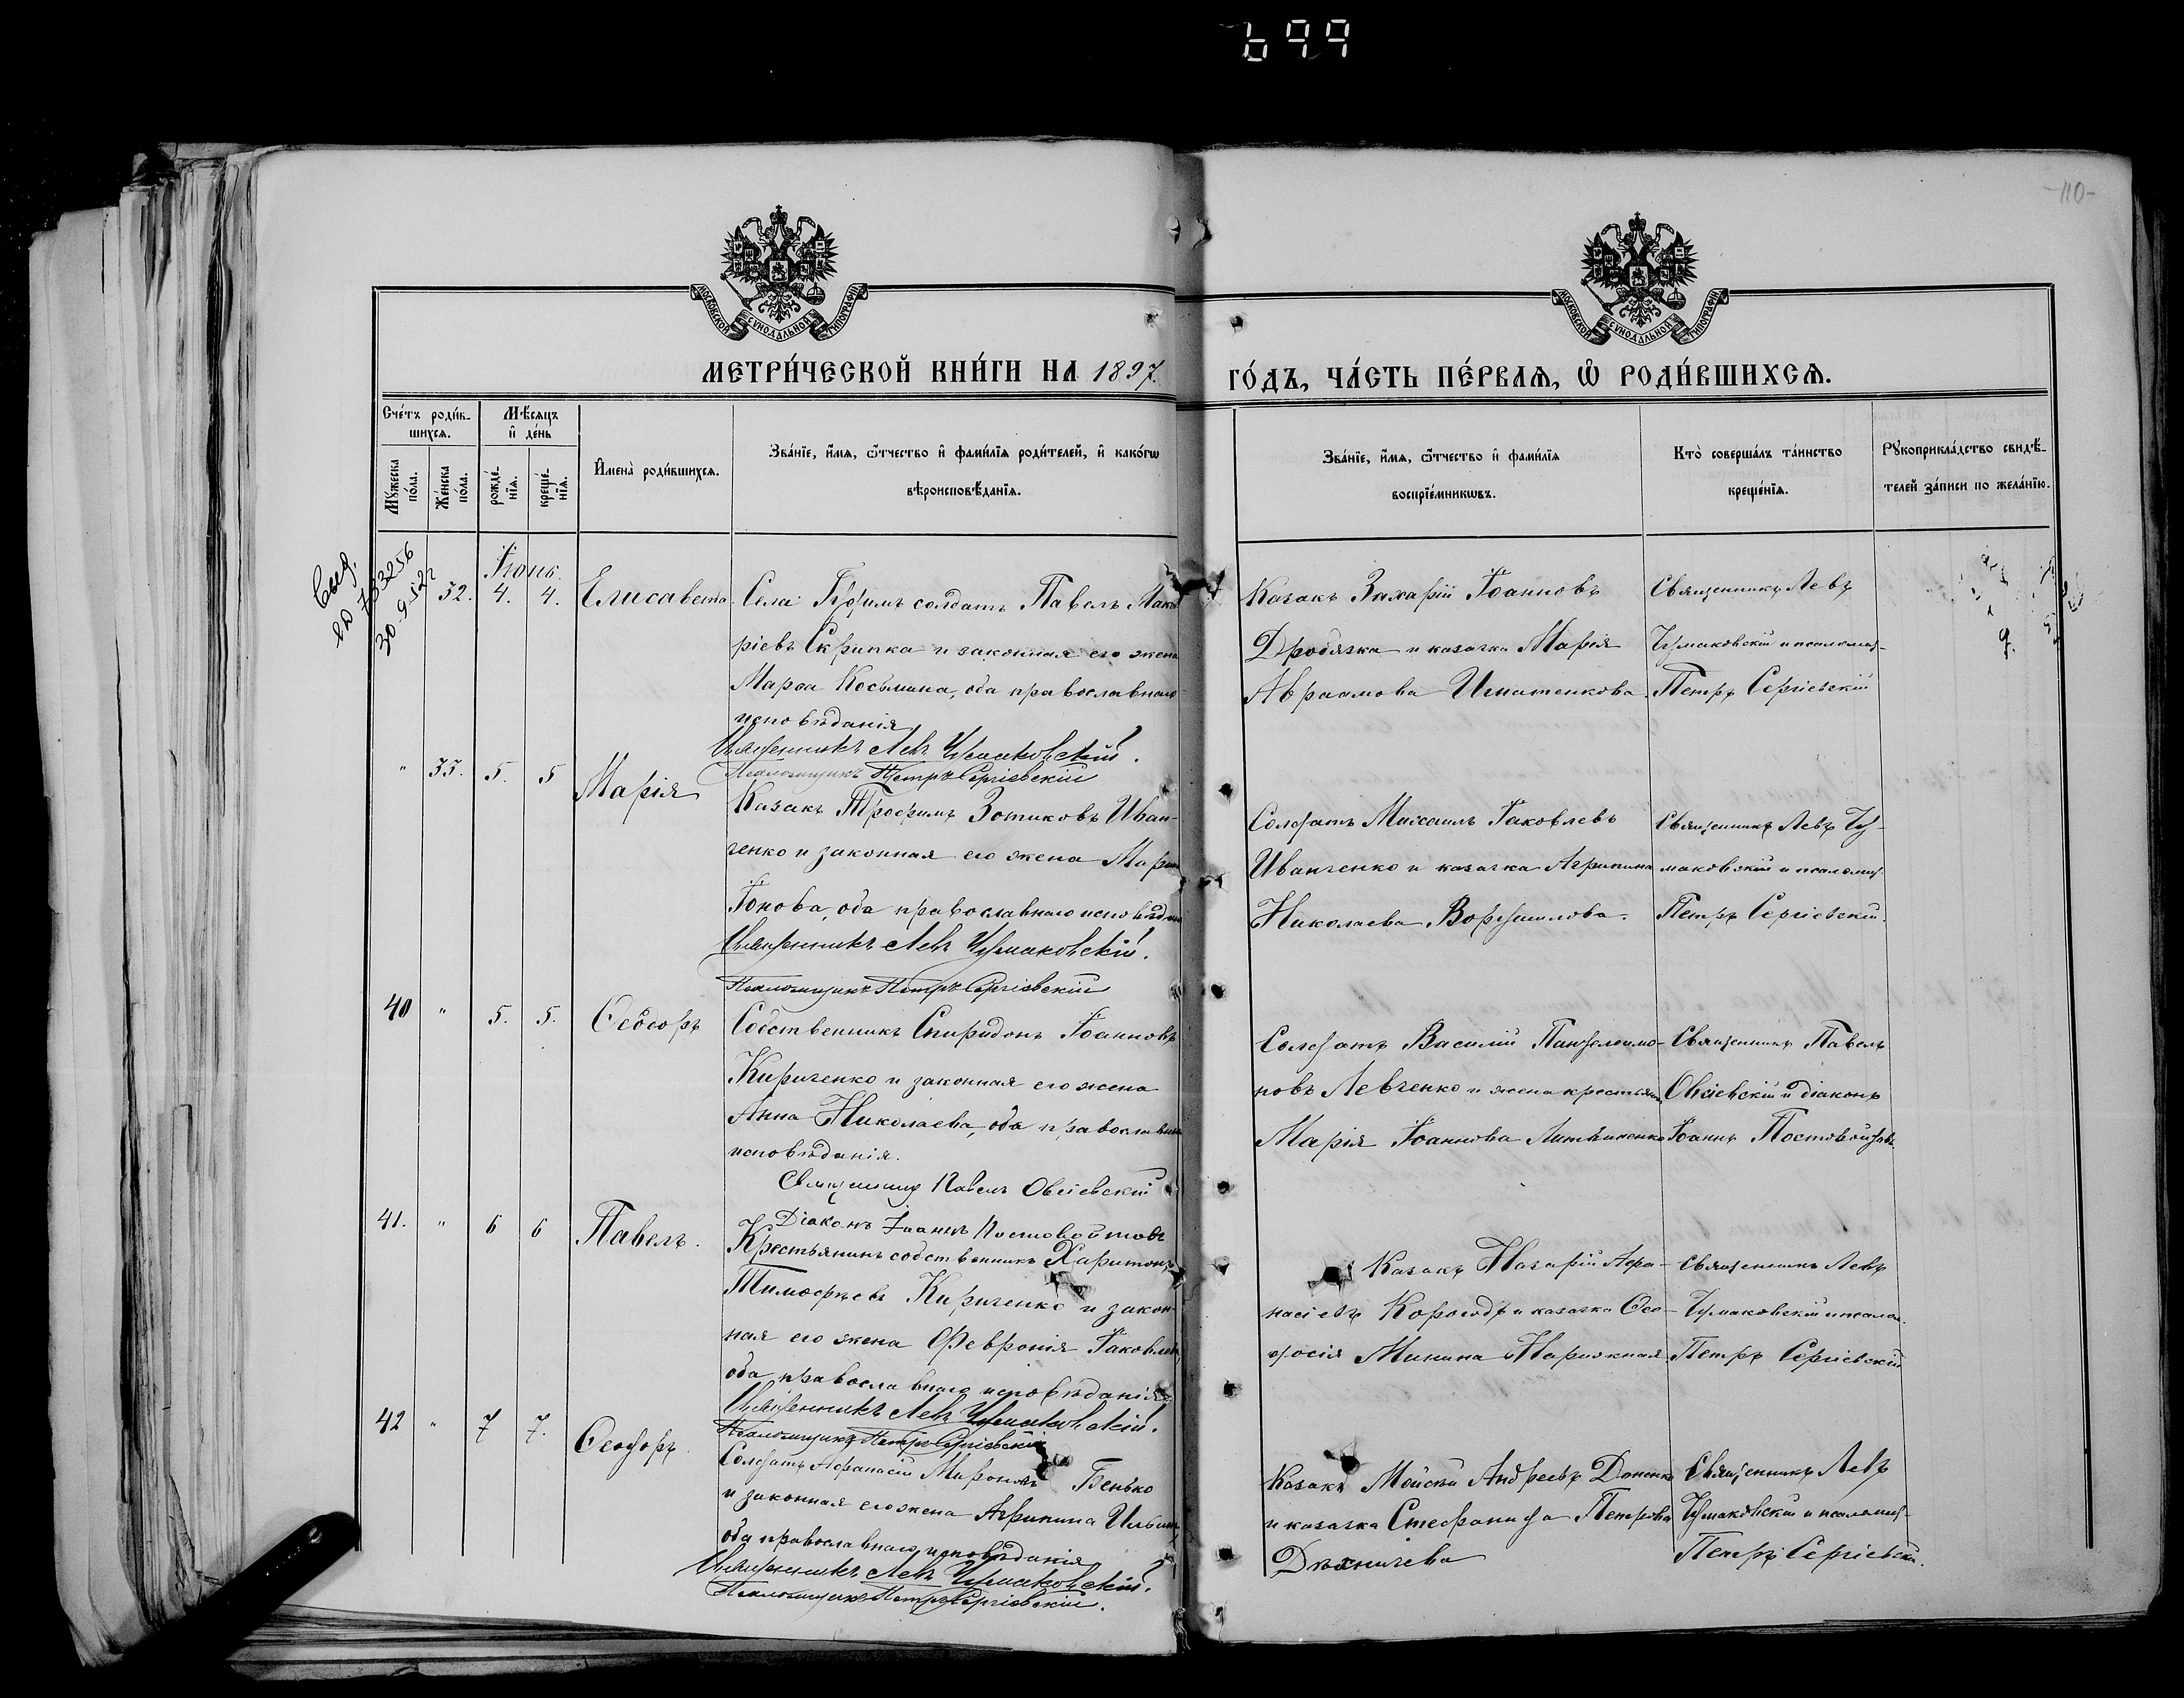 699
-110-
МОСКОВСКОЙ СѴНОДАЛЬНОЙ ТИПОГРАФІИ
МОСКОВСКОЙ СѴНОДАЛЬНОЙ ТИПОГРАФІИ
МЕТРИ́ЧЕСКОЙ КНИ́ГИ НА 1897.
ГО́ДЪ, ЧА́СТЬ ПЕ́РВАЯ, Ѡ РОДИ́ВШИХСЯ.
Сче́тъ роди́в-
шихся.
Мѣ́сяцъ
и де́нь
Му́жеска по́ла.
Же́нска по́ла.
рожде́нїя.
креще́нїя.
Имена̀ роди́вшихся.
Зва́нїе, и́мя, ѻ́тчество и фами́лїя роди́телей, и како́гѡ
вѣроисповѣ́данїя.
Зва́нїе, и́мя, ѻ́тчество и фами́лїя
воспрїе́мникѡвъ.
Кто̀ соверша́лъ та́инство
креще́нїя.
Рꙋкоприкла́дство свидѣ́-
телей за́писи по жела́нїю.
Свид.
733256
30-9-52г
Іюнь.
32. 4. 4. Елисавета
Села солдатъ Павелъ Мака
ріевъ Скрипка и законная его жена
Марѳа Косьмина, оба православнаго
исповѣданія
Священникъ Левъ Чумаковскій.
Псаломщикъ Петръ Сергіевскій
Казакъ Захарій Іоанновъ
Дробязка и казачка Марія
Авраамова Игнатенкова
Священникъ Левъ
Чумаковскій и псаломщ-
Петръ Сергіевскій
" 33. 5. 5 Марія
Казакъ Трофимъ Зотиковъ Иван-
ченко и законная его жена
Іонова, оба православнаго исповѣдан
Священникъ Левъ Чумаковскій.
Псаломщикъ Петръ Сергіевскій
Солдатъ Михаилъ Іаковлевъ
Иванченко и казачка Агрипина
Николаева Ворушилова.
Священникъ Левъ Чу-
маковскій и псаломщ
Петръ Сергіевскій.
40 " 5. 5. Ѳеодоръ
Собственникъ Спиридонъ Іоанновъ
Кириченко и законная его жена
Анна Николаева, оба православна
исповѣданія.
Священникъ Павелъ Овсіевскій
Діаконъ Іоаннъ Постовойтовъ
Солдатъ Василій Пантелеимо-
новъ Левченко и жена крестьян
Марія Іоаннова Литвиненко
Священникъ Павелъ
Овсіевскій и діаконъ
Іоаннъ Постовойтовъ
41. " 6 6 Павелъ.
Крестьянинъ собственникъ Харитонъ
Тимоѳеевъ Кириченко и закон-
ная его жена Февронія Іаковлев,
оба православнаго исповѣданія
Священникъ Левъ Чумаковскій.
Псаломщикъ Петръ Сергіевскій
Казакъ Назарій Аѳа-
насіевъ и казачка Ѳео-
досія Минина
Священникъ Левъ
Чумаковскій и псалом.
Петръ Сергіевскій
42 " 7 7. Ѳеодоръ.
Солдатъ Аѳанасій Мироновъ Бенько
и законная его жена Агрипина Ильин
оба православнаго исповѣданія
Священникъ Левъ Чумаковскій.
Псаломщикъ Петръ Сергіевскій.
Казакъ Моисей Андреевъ Доненко
и казачка Стефанида Петрова
Священникъ Левъ
Чумаковскій и псаломщ-
Петръ Сергіевскій.